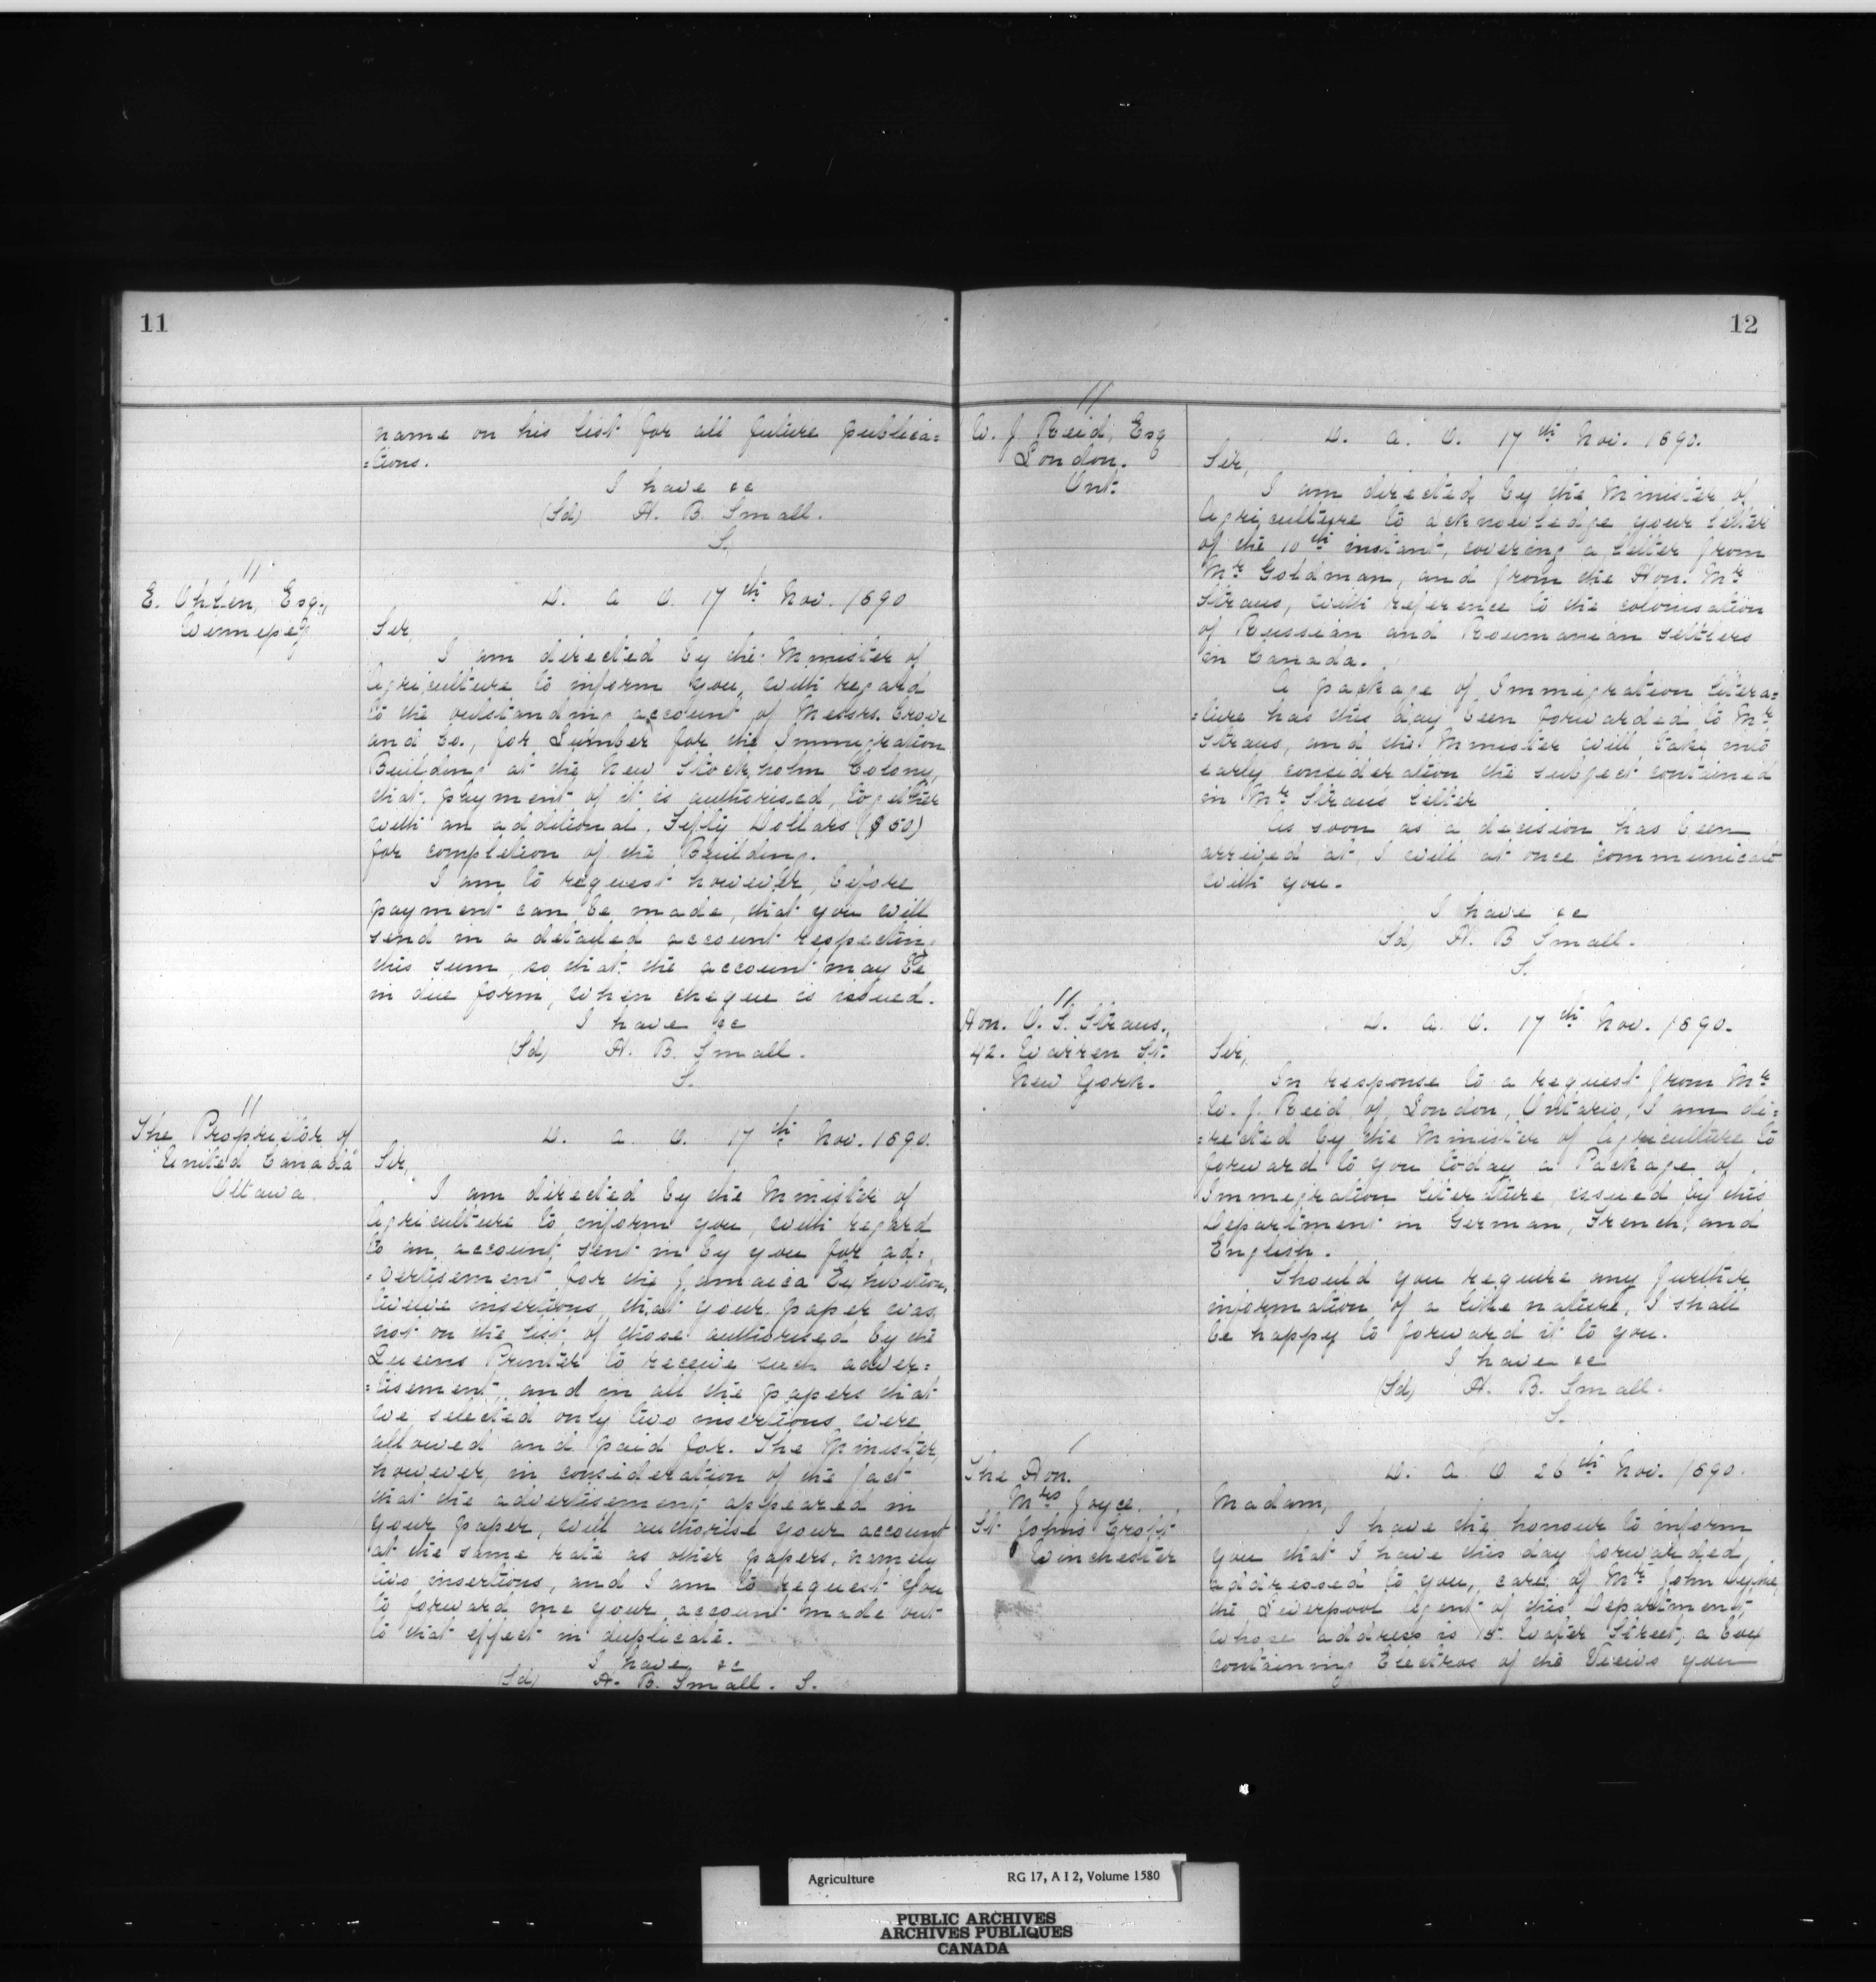 11
name on his list for all future publica=
=tions.
I have &c
(Sd) H. B. Small.
S.
11
E. Ohlen, Esq.,
Winnipeg
D. A. O. 17th Nov. 1890
Sir,
I am directed by the Minister of
Agriculture to inform you, with regard
to the outstanding account of Messrs. Crowe
and Co., for Lumber for the Immigration
Building at the New Stockholm Colony,
that payment of it is authorised, together
with an additional, Fifty Dollars ($50)
for completion of the Building.
I am to request however, before
payment can be made, that you will
send in a detailed account respecting
this sum, so that the account may be
in due form, when cheque is issued.
I have &c
(Sd) H. B. Small.
S.
11
The Proprietor of
"United Canada"
Ottawa.
D. A. O. 17th Nov. 1890.
Sir,
I am directed by the Minister of
Agriculture to inform you, with regard
to an account sent in by you for ad=
=vertisement for the Jamaica Exhibition,
twelve insertions, that your paper was
not on the list of those authorised by the
Queens Printer to receive such adver=
=tisement, and in all the papers that
we selected only two insertions were
allowed and paid for. The Minister,
however, in consideration of the fact
that the advertisement appeared in
your paper, will authorise your account
at the same rate as other papers, namely
two insertions, and I am to request you
to forward me your account made out
to that effect in duplicate.
I have &c
(Sd) H. B. Small. S.
12
11
W. J. Reid, Esq
London.
Ont.
D. A. O. 17th Nov. 1890.
Sir,
I am directed by the Minister of
Agriculture to acknowledge your letter
of the 10th instant, covering a letter from
Mr Goldman, and from the Hon. Mr
Straus, with reference to the colonisation
of Russian and Roumanian settlers
in Canada.
A package of Immigration litera=
=ture has this day been forwarded to Mr
Straus, and the Minister will take into
early consideration the subject contained
in Mr Straus letter
As soon as a decision has been
arrived at, I will at once communicate
with you.
I have &c
(Sd) H. B Small.
S.
11
Hon. O. S. Straus.,
42. Warren St.
New York.
D. A. O. 17th Nov. 1890.
Sir,
In response to a request from Mr
W. J. Reid of London, Ontario, I am di=
=rected by the Minister of Agriculture to
forward to you today a Package of
Immigration literature, issued by this
Department in German, French, and
English.
Should you require any further
information of a like nature, I shall
be happy to forward it to you.
I have &c
(Sd) H. B. Small.
S.
The Hon.
Mrs Joyce.
St. Johns Croft
Winchester
D. A. O 26th Nov. 1890.
Madam,
I have the honour to inform
you that I have this day forwarded,
addressed to you, care of Mr John Dyke,
the Liverpool Agent of this Department,
whose address is 15. Water Street, a box
containing Electros of the Views you
Agriculture RG 17, A I 2, Volume 1580
PUBLIC ARCHIVES
ARCHIVES PUBLIQUES
CANADA